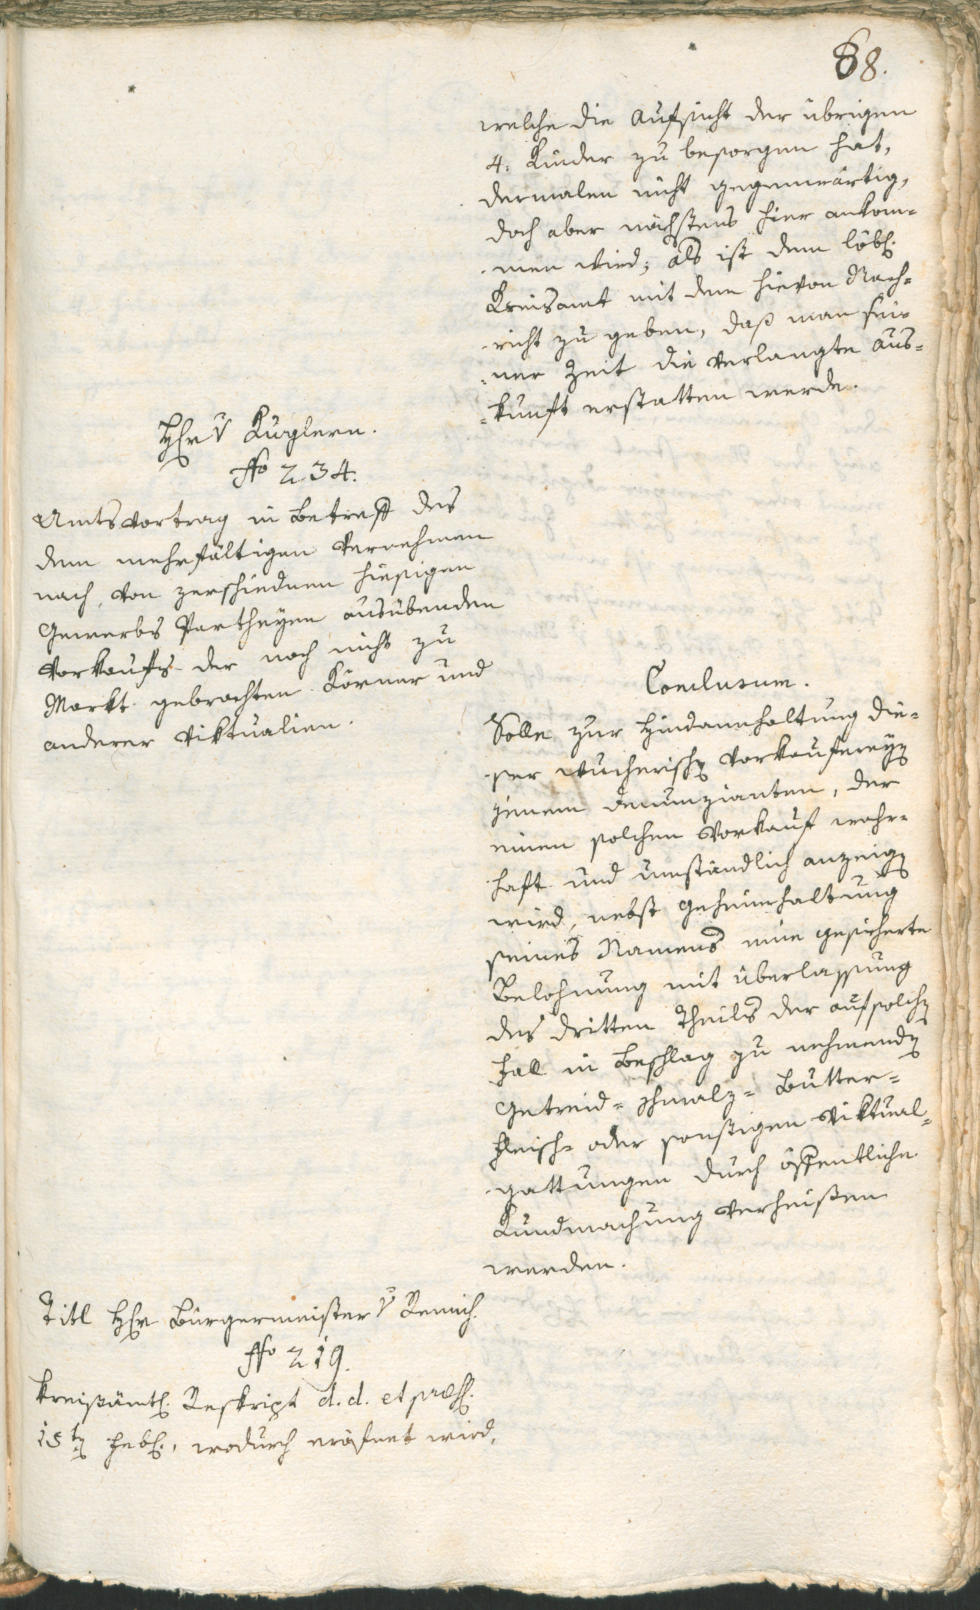 68.
welche die Aufsicht der übrigen
4. Kinder zu besorgen hat,
dermalen nicht gegenwärtig,
doch aber nächstens hier ankom-
men wird; als ist dem löbl.
Kreisamt mit dem hievon Nach-
richt zu geben, daß man sei-
ner Zeit die verlangte Aus-
kunft erstatten werde.
Hr v Kuglern.
No 234.
Amtsvortrag in Betreff des
dem mehrfältigen Vernehmen
nach, von zerschiednen hiesigen
Gewerbs Partheyen ausübenden
Vorkaufs der noch nicht zu
Markt gebrachten Körner und
anderer Viktualien.
Conclusum.
Solle zur Hindannhaltung die-
ser wucherischen Vorkäufereyen
jenem Denunzianten, der
einen solchen Vorkauf wahr-
haft und umständlich anzeigen
wird, nebst Geheimhaltung
seines Namens eine gesicherte
Belohnung mit Überlassung
des dritten Theils der auf solchen
Fall in Beschlag zu nehmenden
Getreid- Schmalz- Butter-
Fleisch- oder sonstigen Viktual-
gattungen durch öffentliche
Kundmachung verheißen
werden.
Titl Hr Bürgermeister v Remich.
No 219.
Kreisämtl. Reskript d. d. et praes.
15ten Febr., wodurch eröfnet wird,